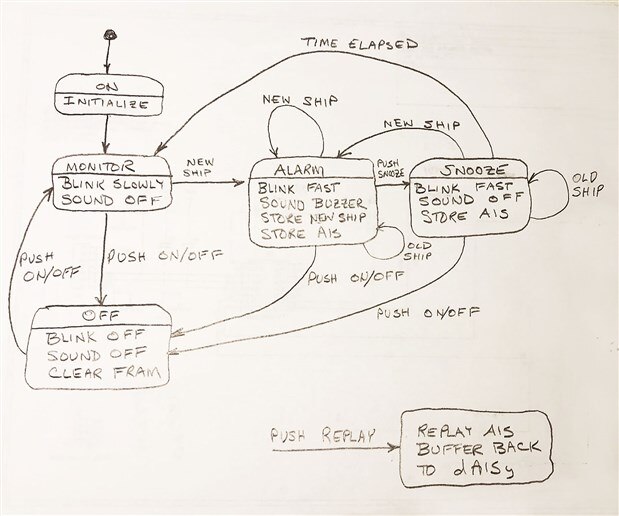 TIME ELAPSED
ON
INITIALIZE
NEW SHIP
NEW SHIP
MONITOR
BLINK SLOWLY
SOUND OFF
NEW
SHIP
ALARM
BLINK FAST
SOUND BUZZER
STORE NEW SHIP
STORE AIS
PUSH
SNOOZE
SNOOZE
BLINK FAST
SOUND OFF
STORE AIS
OLD
SHIP
OLD
SHIP
PUSH
ON/OFF
PUSH ON/OFF
PUSH ON/OFF
PUSH ON/OFF
OFF
BLINK OFF
SOUND OFF
CLEAR FRAM
PUSH REPLAY
REPLAY AIS
BUFFER BACK
TO dAISy